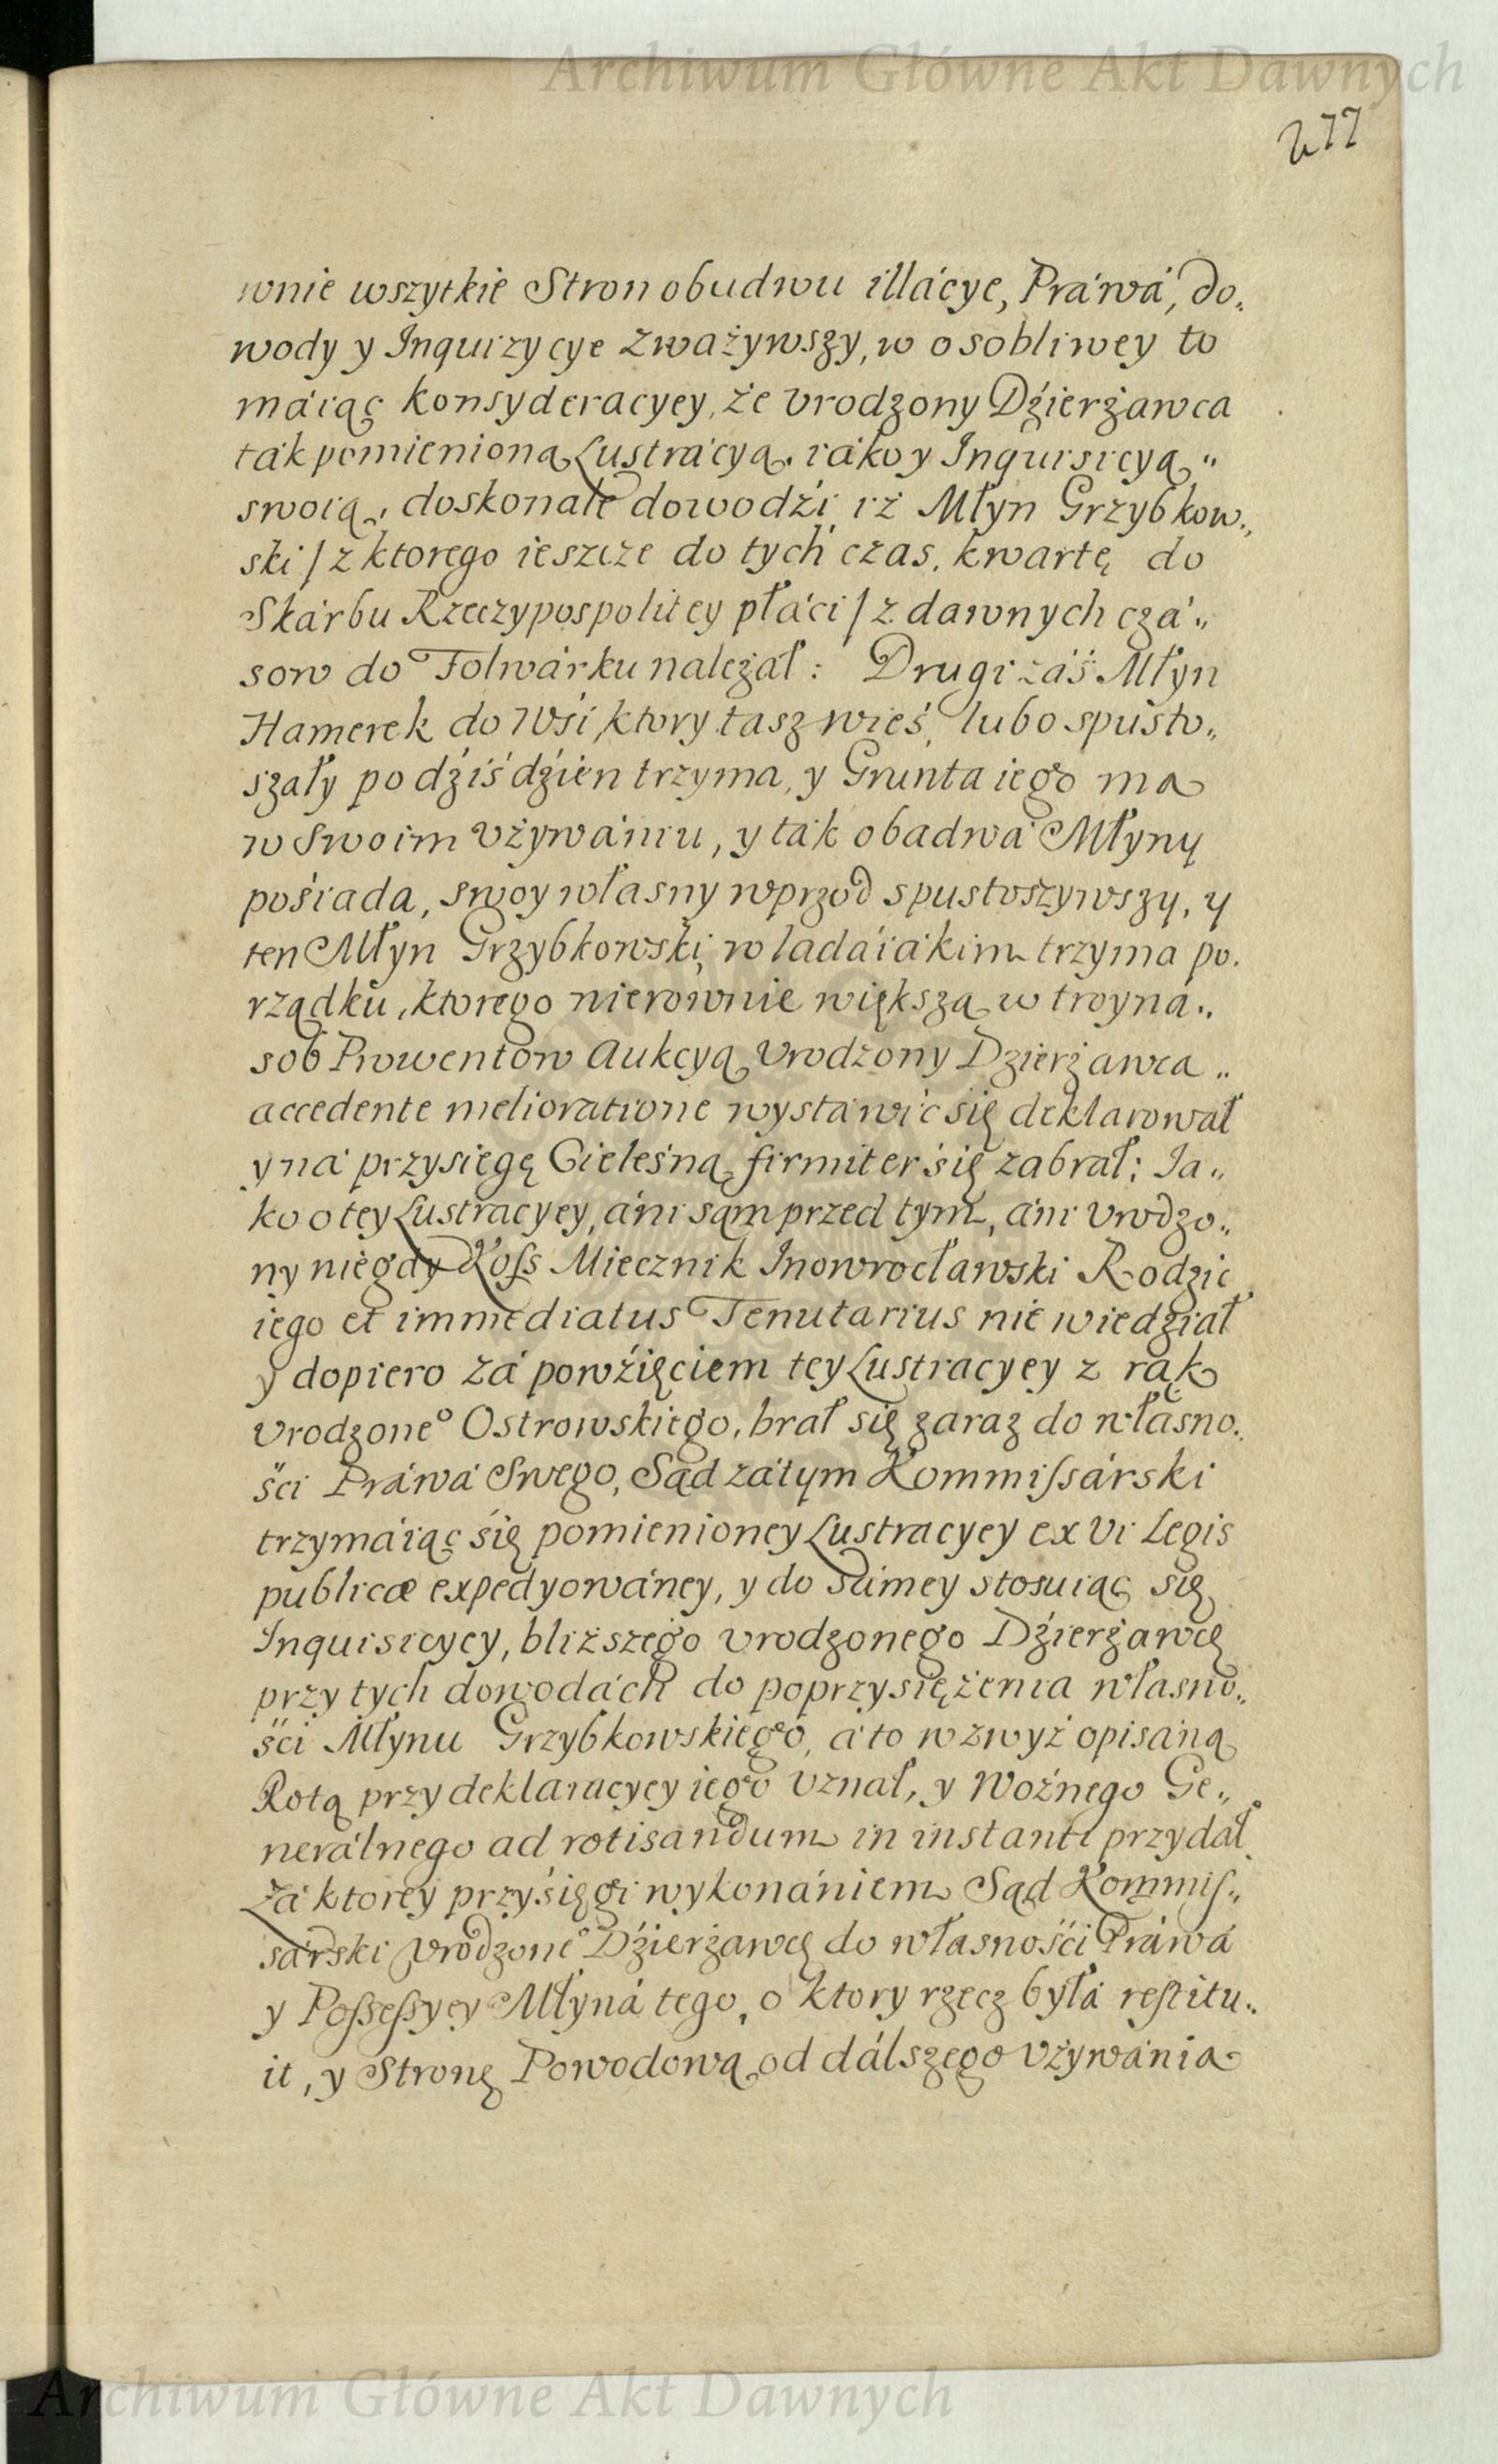 Archiwum Główne Akt Dawnych
277
wnie wszytkie Stron obudwu illácye, Práwá, do„
wody y Inquizycye zważywszy, w osobliwey to
máiąc konsyderacyey, że Vrodzony Dźierżawca
ták pomienioną Lustrácyą, iáko y Inquisicyą„
swoią, doskonale dowodźi, iż Młyn Grzybkow„
ski / z ktorego ieszcze do tych czas, kwartę do
Skárbu Rzeczypospolitey płáci / z dawnych czá„
sow do Folwárku należał: Drugi záś Młyn
Hamerek do Wśi, ktory tasz wieś, lubo spusto„
szały po dźiś dźien trzyma, y Grunta iego ma
w swoim vżywániu, y ták obadwá Młyny
pośiada, swoy własny wprzod spustoszywszy, y
ten Młyn Grzybkowski, w ladáiákim trzyma po„
rządku, ktorego nierownie większą w troyná„
sob Prowentow Aukcyą Vrodzony Dzierżawca„
accedente melioratione wystáwić się deklarował
y ná przysięgę Cieleśną firmiter śię zabrał; Ja„
ko o tey Lustracyey, áni sam przed tym, áni Vrodzo„
ny niegdy Koſs Miecznik Inowrocławski Rodzic
iego et immediatus Tenutarius nie wiedział
y dopiero zá powźięciem tey Lustracyey z rąk
Vrodzone° Ostrowskiego, brał się zaraz do własno„
ści Práwá Swego, Sąd zátym Kommiſsárski
trzymáiąc śię pomienioney Lustracyey ex vi Legis
publicæ expedyowáney, y do sámey stosuiąc się
Inquisicycy, bliższego Vrodzonego Dźierżawcę
przy tych dowodách do poprzysiężenia własno„
ści Młynu Grzybkowskiego, á to wzwyż opisáną
Rotą przy deklaracyey iego vznał, y Woźnego Ge„
nerálnego ad rotisandum in instanti przydał
zá ktorey przyśięgi wykonániem Sąd Kommiſ„
sárski Vrodzone° Dźierżawcę do własności Práwá
y Poſseſsyey Młyná tego, o ktory rzecz byłá reſtitu„
it, y Stronę Powodową od dálszego vżywánia
Archiwum Główne Akt Dawnych